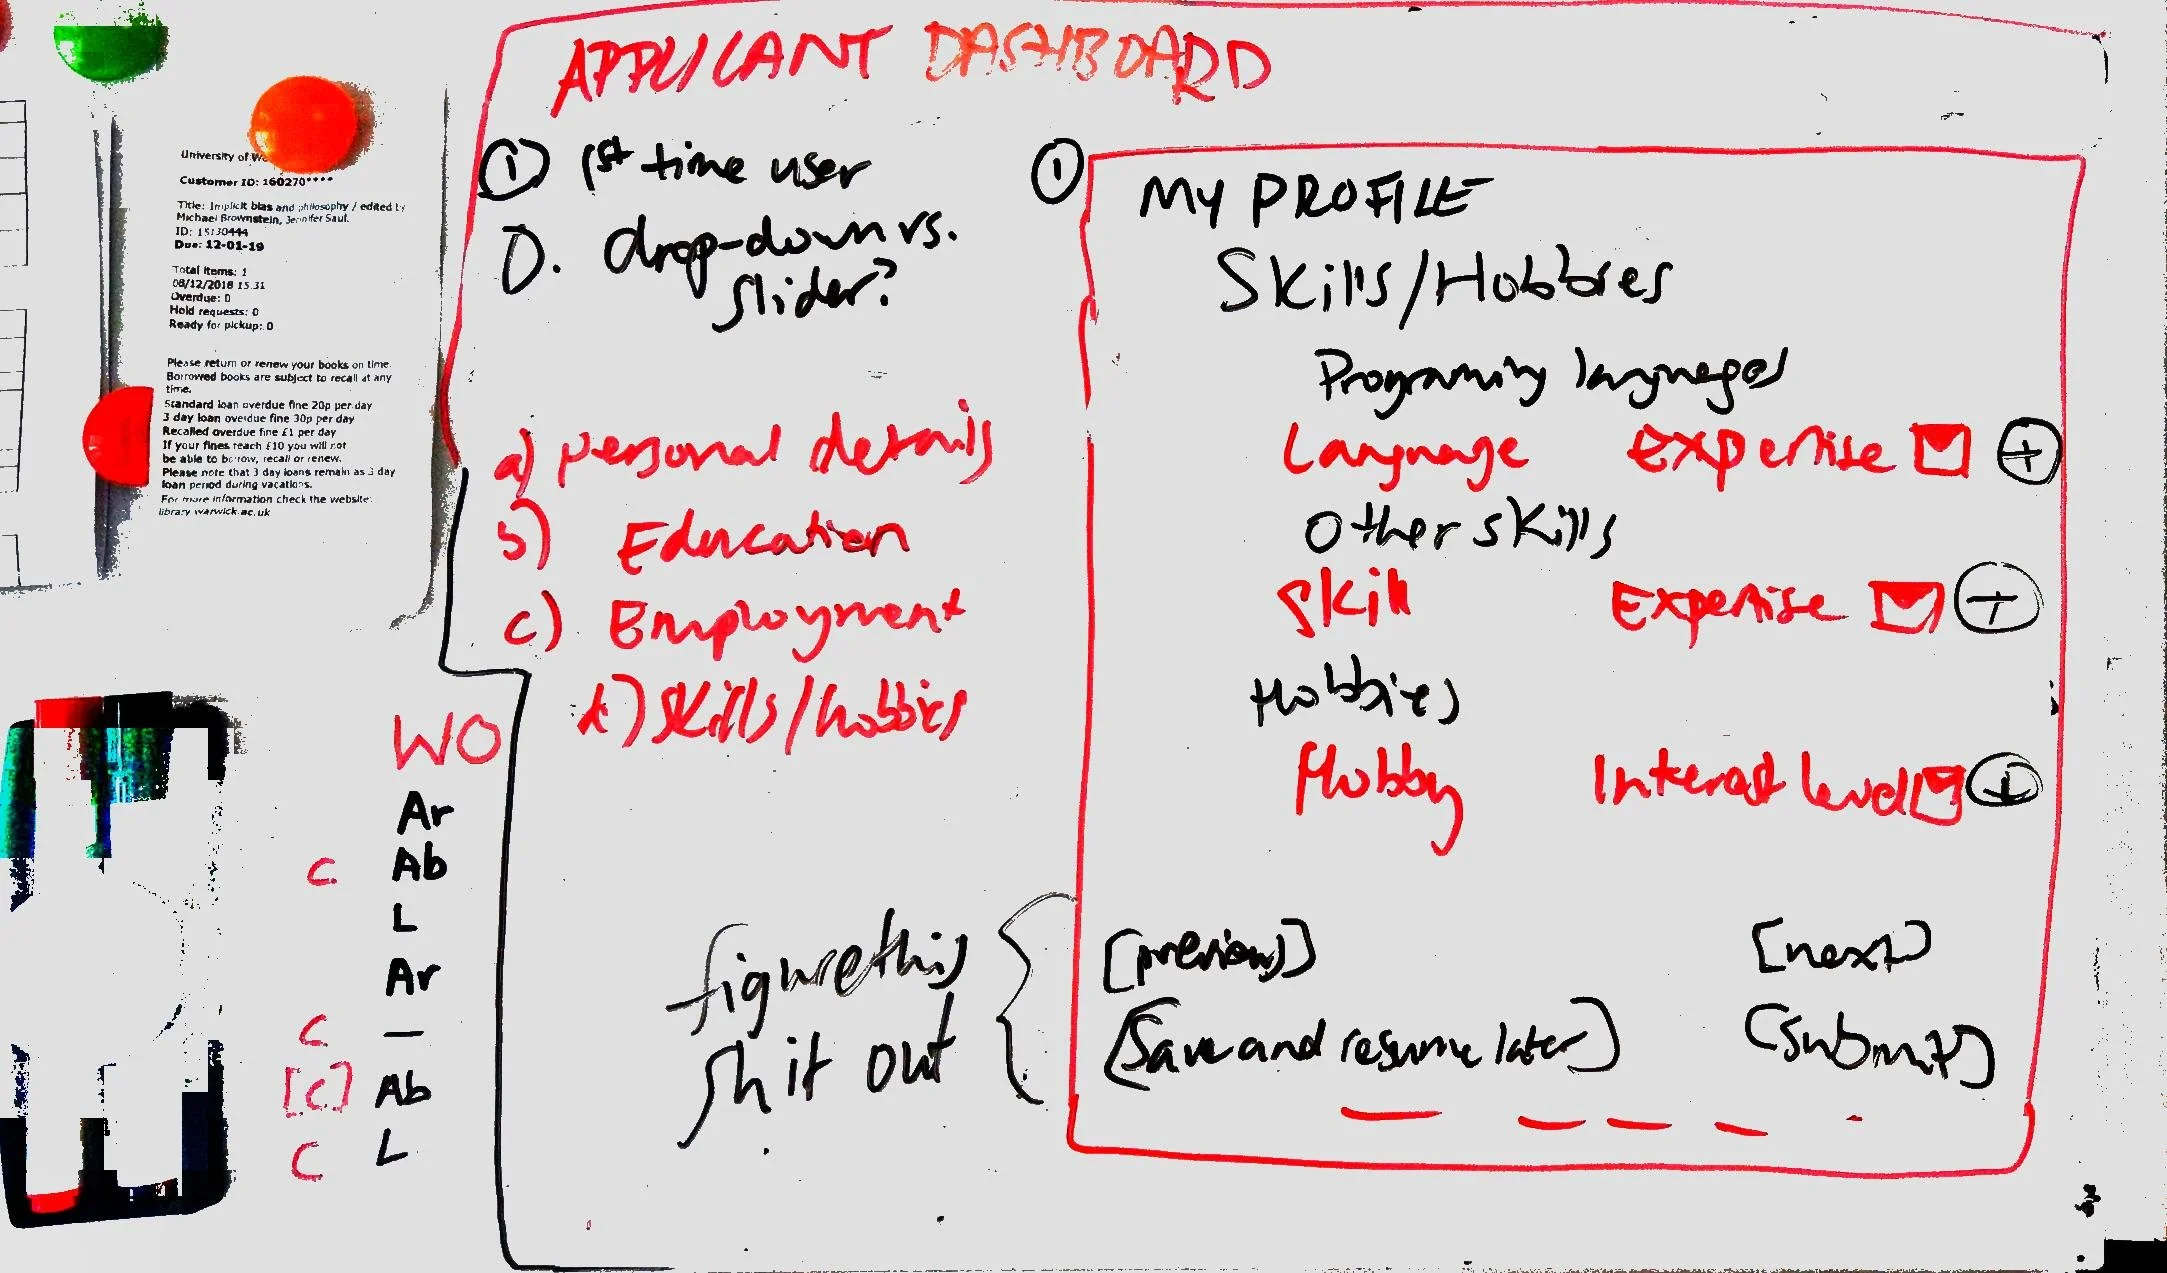 University of W
Customer ID: 160270****
Title: Implicit bias and philosophy / edited by
Michael Brownstein, Jennifer Saul.
ID: 15130444
Due: 12-01-19
Total items: 1
08/12/2018 15:31
Overdue: 0
Hold requests: 0
Ready for pickup: 0
Please return or renew your books on time.
Borrowed books are subject to recall at any
time.
Standard loan overdue fine 20p per day
3 day loan overdue fine 30p per day
Recalled overdue fine £1 per day
If your fines reach £10 you will not
be able to borrow, recall or renew.
Please note that 3 day loans remain as 3 day
loan period during vacations.
For more information check the website:
library.warwick.ac.uk
WO
Ar
C Ab
L
Ar
C —
[C] Ab
C L
APPLICANT DASHBOARD
① 1st time user
D. drop-down vs.
slider?
a) personal details
b) Education
c) Employment
d) skills/hobbies
figure this
shit out
①
MY PROFILE
Skills/Hobbies
Programing languages
Language Expertise +
Other skills
Skill Expertise +
Hobbies
Hobby Interest level +
[previous] [next]
[Save and resume later] [submit]